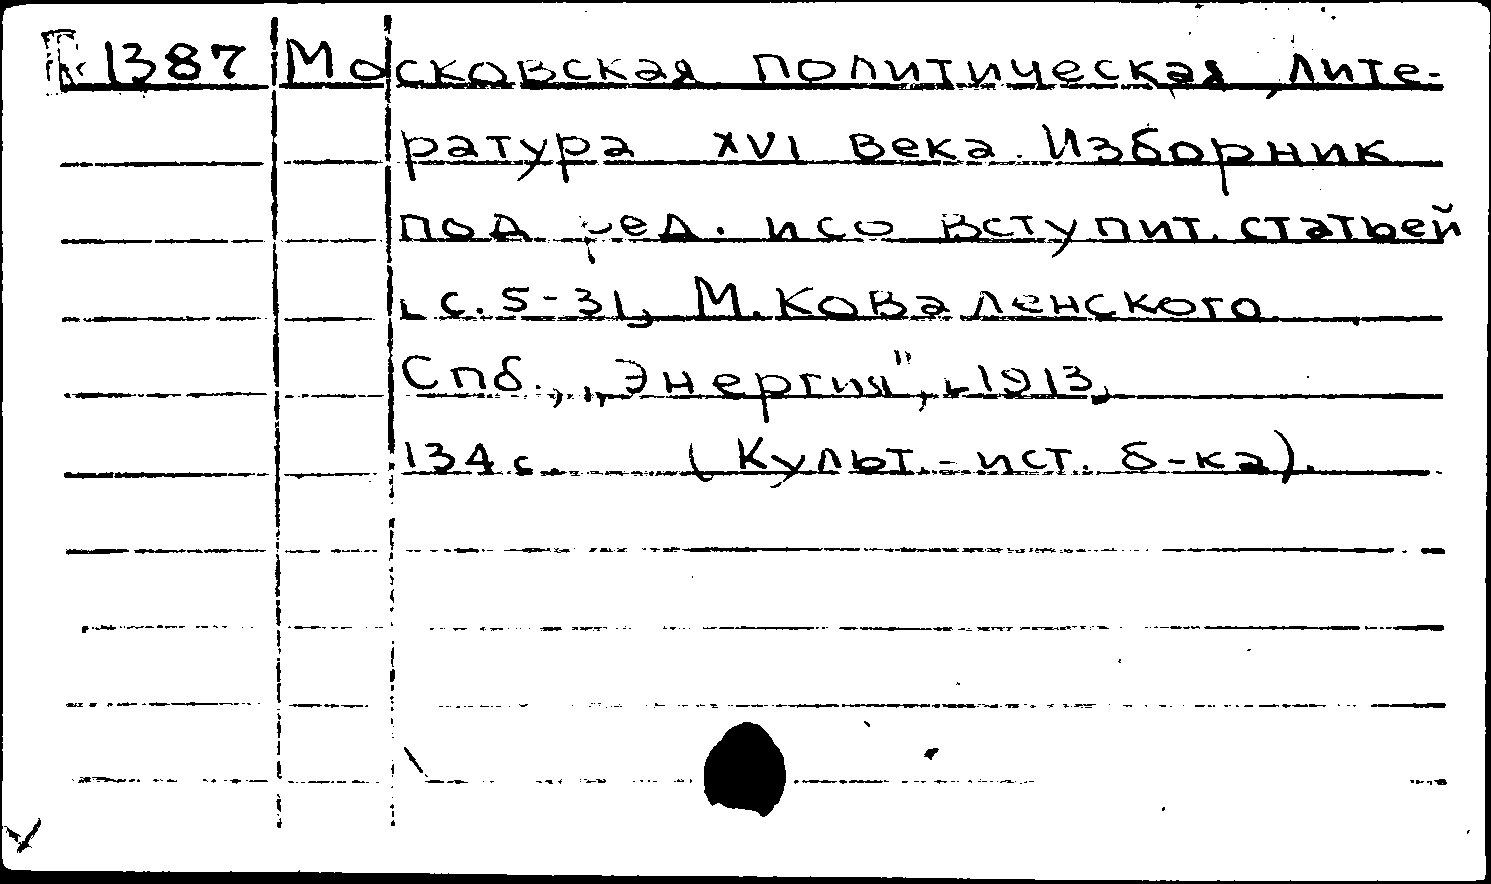 1387 Московская политическая лите-
ратура XVI века. Изборник
под ред. и со вступит. статьей
[с. 5-31] М. Коваленского
Спб., „Энергия", [1913]
134 с. (Культ.-ист. б-ка).